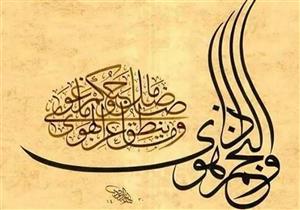 والنجم إذا هوى
ما ضل صاحبكم وما غوى
وما ينطق عن الهوى